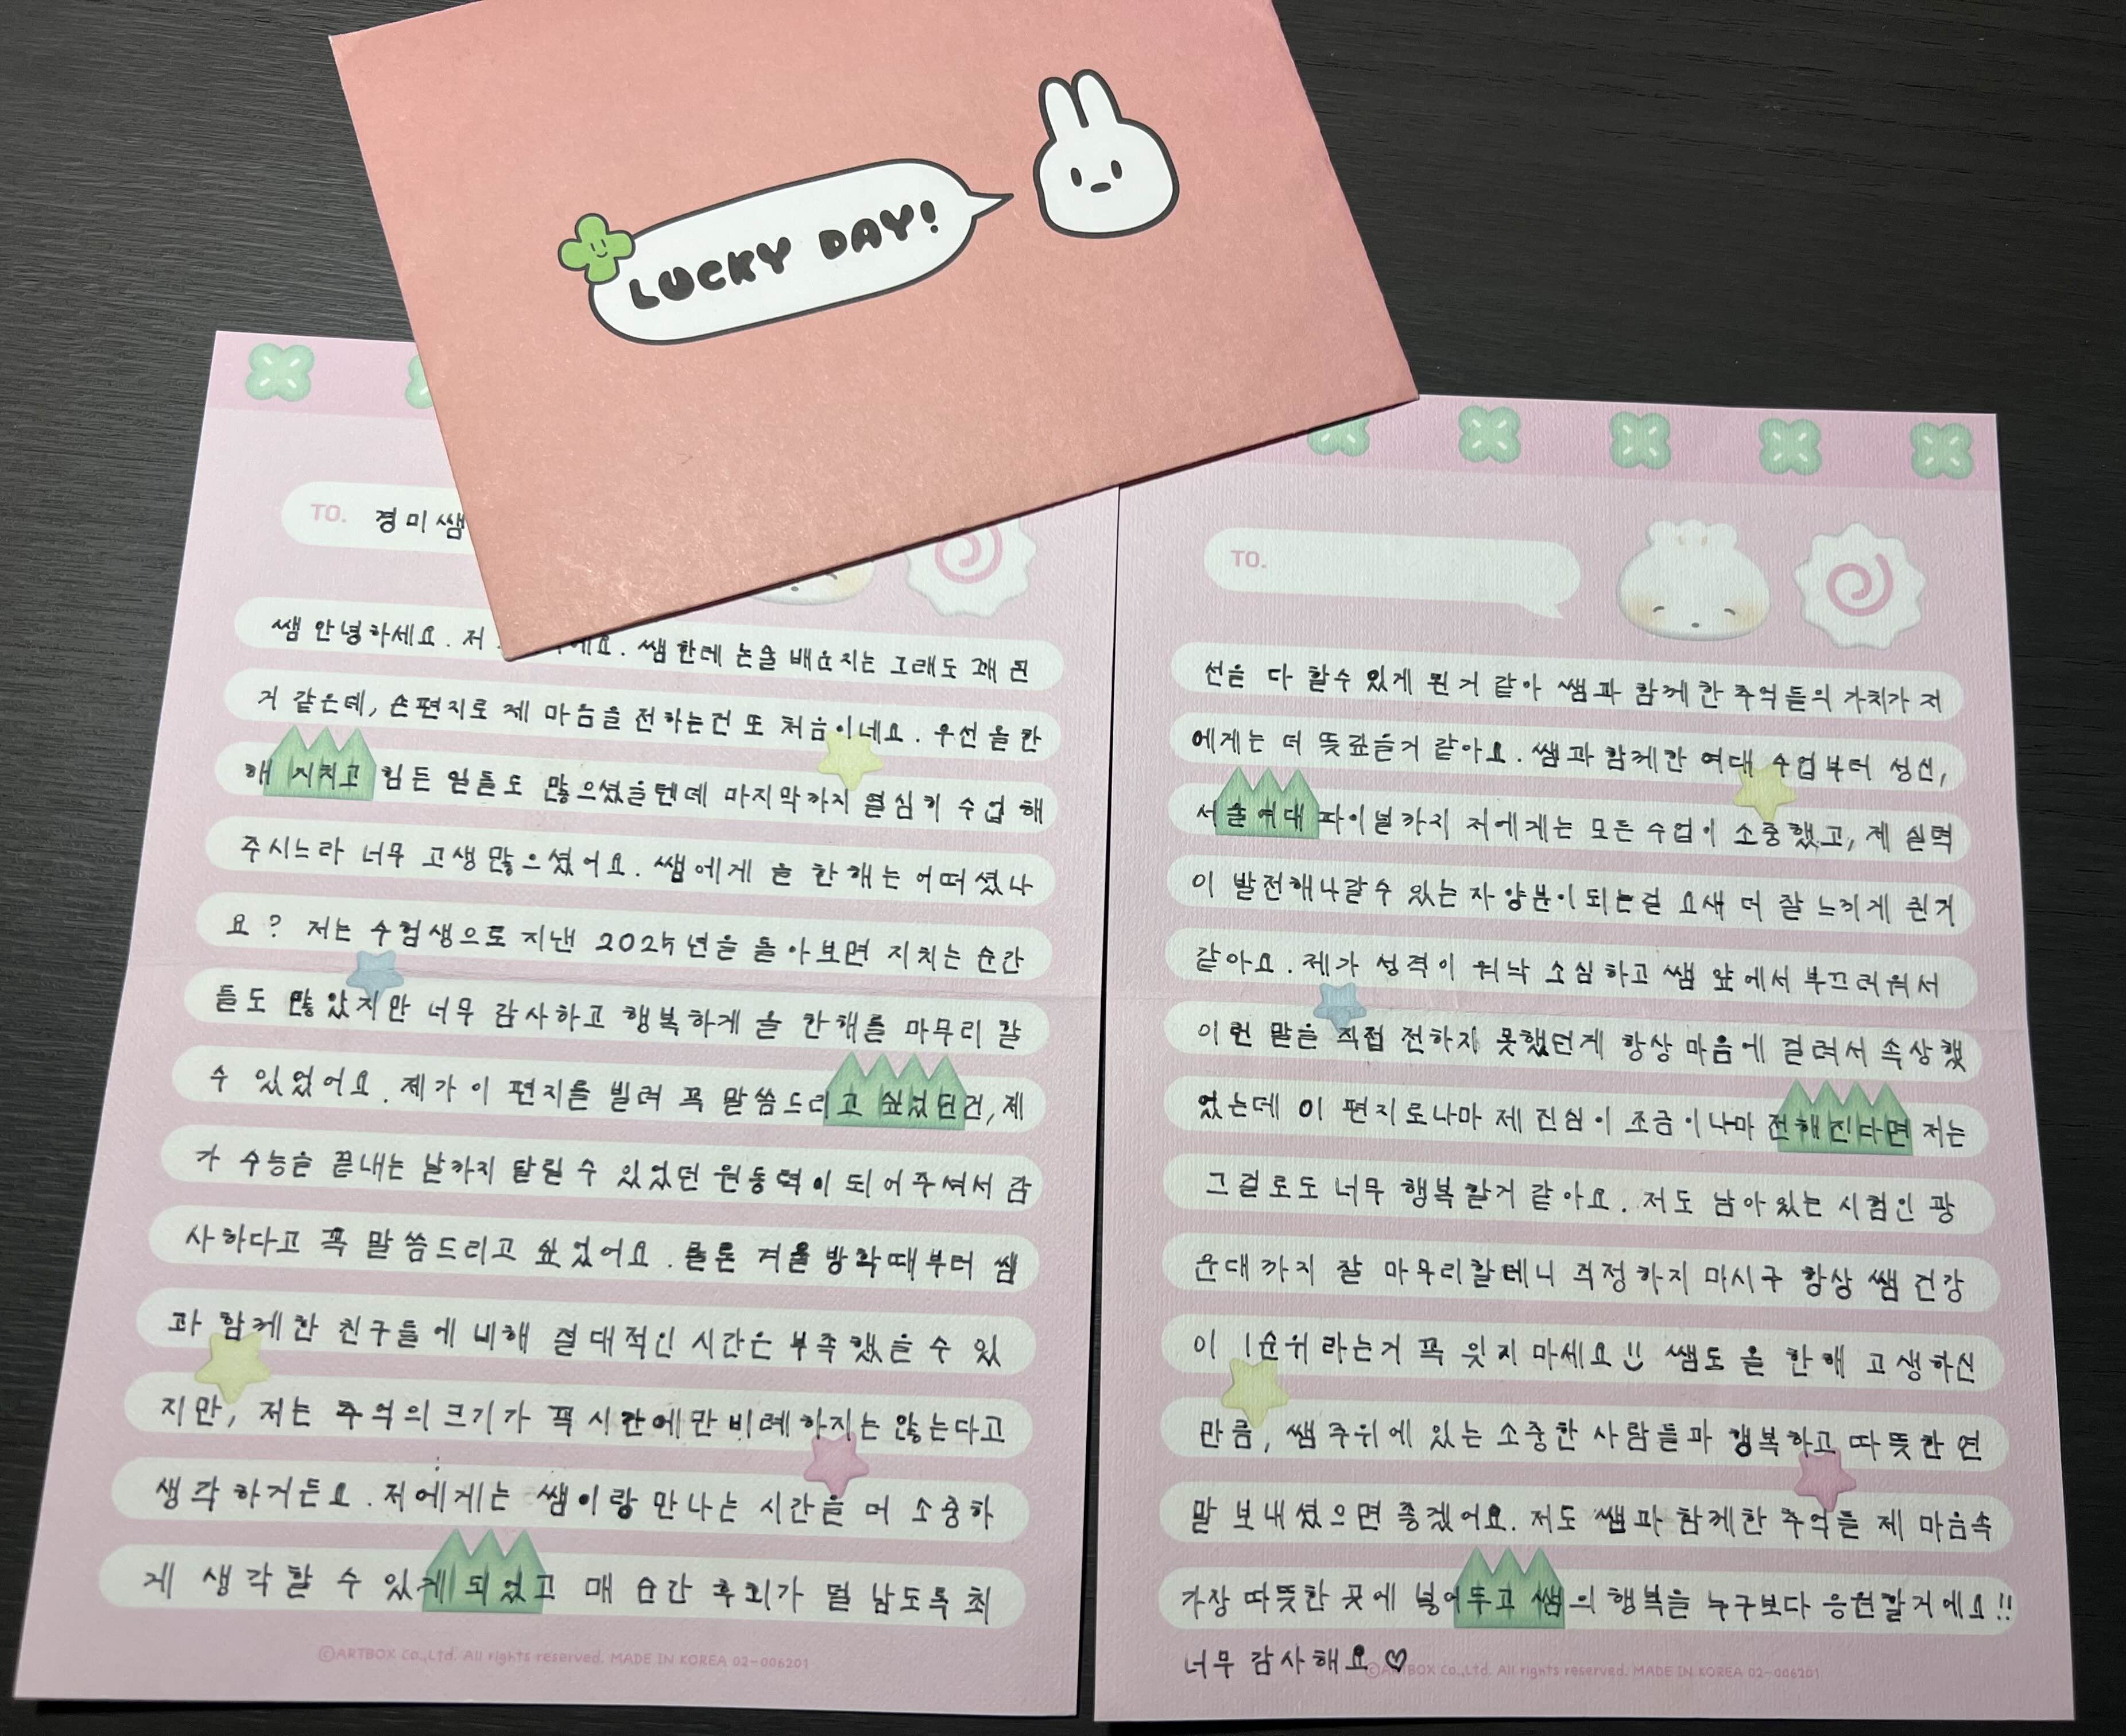 LUCKY DAY!
TO. 경미쌤
쌤 안녕하세요. 저 에요. 쌤한테 논술 배운지는 그래도 꽤 된
거 같은데, 손편지로 제 마음을 전하는건 또 처음이네요. 우선 올 한
해 지치고 힘든 일들도 많으셨을텐데 마지막까지 열심히 수업 해
주시느라 너무 고생 많으셨어요. 쌤에게 올 한 해는 어떠셨나
요? 저는 수험생으로 지낸 2025년을 돌아보면 지치는 순간
들도 많았지만 너무 감사하고 행복하게 올 한해를 마무리 할
수 있었어요. 제가 이 편지를 빌려 꼭 말씀드리고 싶었던건, 제
가 수능을 끝내는 날까지 달릴 수 있었던 원동력이 되어주셔서 감
사하다고 꼭 말씀드리고 싶었어요. 물론 겨울방학때부터 쌤
과 함께한 친구들에 비해 절대적인 시간은 부족했을 수 있
지만, 저는 추억의 크기가 꼭 시간에만 비례하지는 않는다고
생각하거든요. 저에게는 쌤이랑 만나는 시간을 더 소중하
게 생각할 수 있게 되었고 매 순간 후회가 덜 남도록 최
©ARTBOX Co.,Ltd. All rights reserved. MADE IN KOREA 02-006201
TO.
선을 다 할수 있게 된 거 같아 쌤과 함께 한 추억들의 가치가 저
에게는 더 뜻깊을거 같아요. 쌤과 함께한 여대 수업부터 성신,
서울여대 파이널까지 저에게는 모든 수업이 소중했고, 제 실력
이 발전해나갈수 있는 자양분이 되는걸 요새 더 잘 느끼게 된거
같아요. 제가 성격이 워낙 소심하고 쌤 앞에서 부끄러워서
이런 말을 직접 전하지 못했던게 항상 마음에 걸려서 속상했
었는데 이 편지로나마 제 진심이 조금이나마 전해진다면 저는
그걸로도 너무 행복할거 같아요. 저도 남아있는 시험인 광
운대까지 잘 마무리할테니 걱정하지 마시구 항상 쌤 건강
이 1순위라는거 꼭 잊지 마세요!! 쌤도 올 한해 고생하신
만큼, 쌤 주위에 있는 소중한 사람들과 행복하고 따뜻한 연
말 보내셨으면 좋겠어요. 저도 쌤과 함께한 추억들 제 마음속
가장 따뜻한 곳에 넣어두고 쌤의 행복을 누구보다 응원할거에요!!
너무 감사해요♡
©ARTBOX Co.,Ltd. All rights reserved. MADE IN KOREA 02-006201